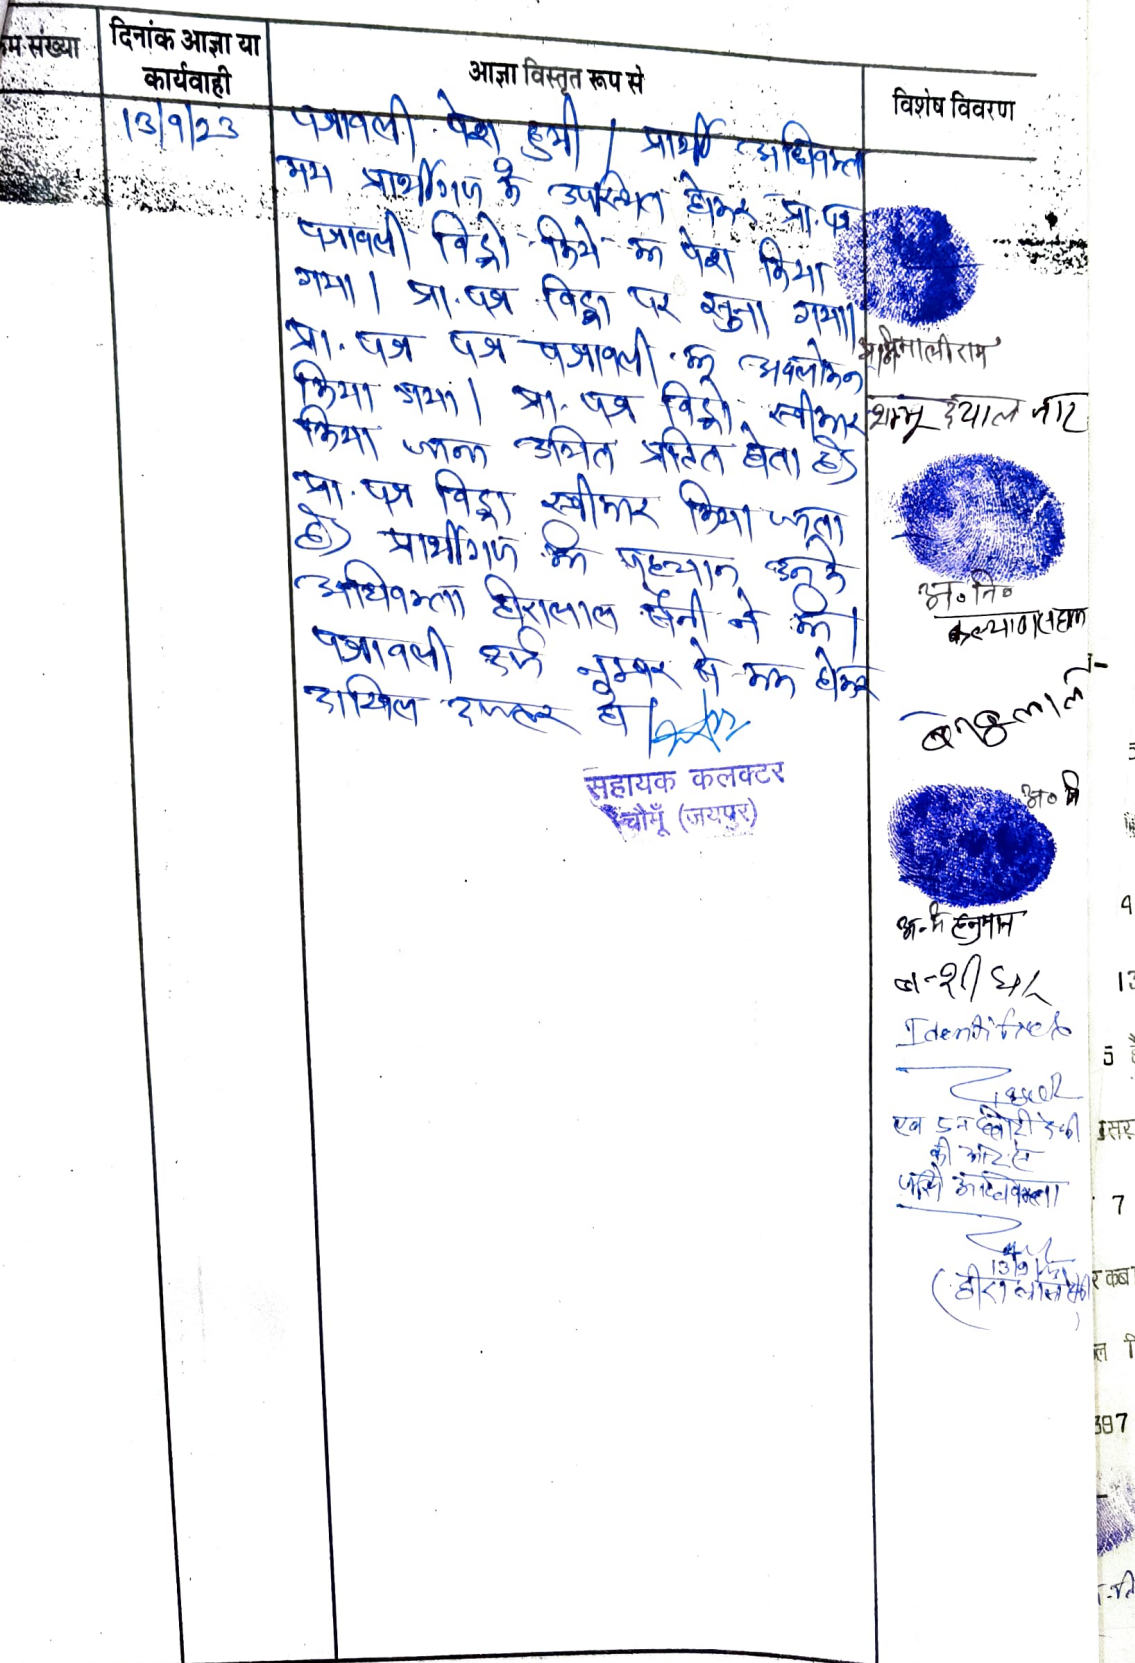 क्रम संख्या
दिनांक आज्ञा या
कार्यवाही
आज्ञा विस्तृत रूप से
विशेष विवरण
13/9/23
पत्रावली पेश हुयी। प्रार्थी अधिवक्ता
मय प्रार्थीगण के उपस्थित होकर प्रा.पत्र
पत्रावली विड्रो किये का पेश किया
गया। प्रा.पत्र विड्रा पर सुना गया।
प्रा.पत्र पत्र पत्रावली का अवलोकन
किया गया। प्रा.पत्र विड्रो स्वीकार
किया जाना उचित प्रतित होता है।
प्रा.पत्र विड्रा स्वीकार किया जाता
है। प्रार्थीगण की पहचान उनके
अधिवक्ता हीरालाल सैनी ने की।
पत्रावली दर्ज नम्बर से कम होकर
दाखिल दफ्तर हो।
सहायक कलक्टर
चौमूँ (जयपुर)
मालीराम
शम्भू दयाल जाट
अ०नि०
कल्याण सहाय
अ० नि
अ.नि हनुमान
बन्शीधर
Identified
की ओर से
जरिये अधिवक्ता
13/9/23
(हीरालाल सैनी)